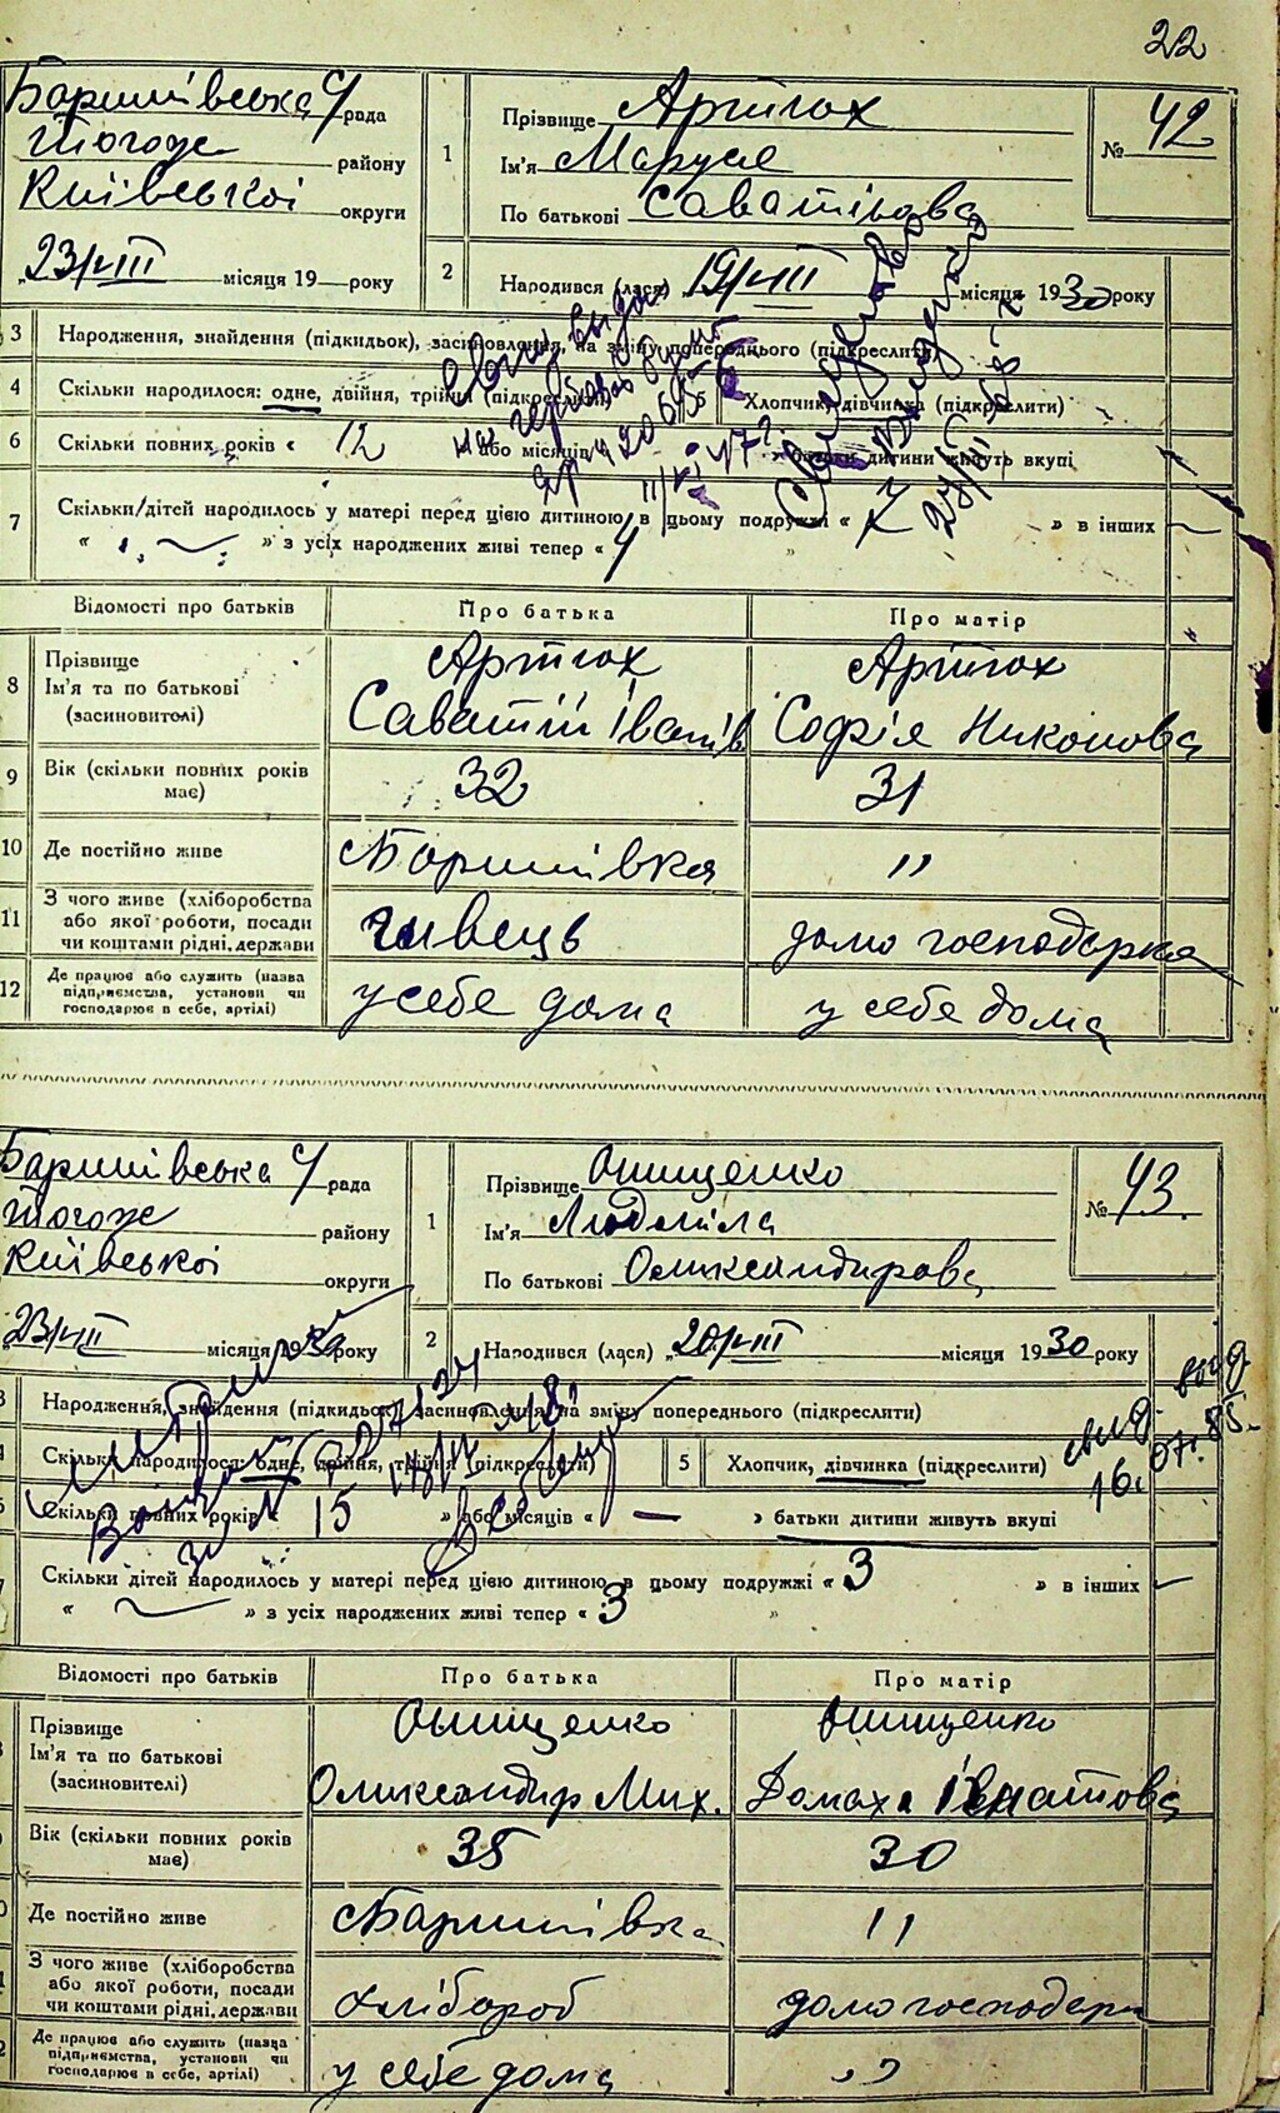 22
Баришівська с/рада
тогож району
Київської округи
„23/VIII місяця 19 року
1
Прізвище Артюх
Ім'я Маруся
По батькові Саватіьова
№ 42
2
Народився (лася) „19/VIII місяця 1930 року
3 Народження, знайдення (підкидьок), засиновлення, на зміну попереднього (підкреслити)
4 Скільки народилося: одне, двійня, трійня (підкреслити) 5 Хлопчик, дівчинка (підкреслити)
6 Скільки повних років « 12 » або місяців « » батьки дитини живуть вкупі
7 Скільки дітей народилось у матері перед цією дитиною в цьому подружжі « » в інших —
« — » з усіх народжених живі тепер « 4 »
Відомості про батьків Про батька Про матір
8 Прізвище Артюх Артюх
Ім'я та по батькові
(засиновителі) Саватій Іванів Софія Никонова
9 Вік (скільки повних років має) 32 31
10 Де постійно живе Баришівка "
11 З чого живе (хліборобства
або якої роботи, посади
чи коштами рідні, держави швець домо господарка
12 Де працює або служить (назва
підприємства, установи чи
господарює в себе, артілі) у себе дома у себе дома
Баришівська с/рада
тогож району
Київської округи
„23/VIII місяця 1930 року
1
Прізвище Онищенко
Ім'я Людміла
По батькові Олександрова
№ 43.
2
Народився (лася) „20/VIII місяця 1930 року
Народження, знайдення (підкидьок), засиновлення, на зміну попереднього (підкреслити)
Скільки народилося: одне, двійня, трійня (підкреслити) 5 Хлопчик, дівчинка (підкреслити)
Скільки повних років « 15 » або місяців « — » батьки дитини живуть вкупі
Скільки дітей народилось у матері перед цією дитиною в цьому подружжі « 3 » в інших —
« — » з усіх народжених живі тепер « 3 »
Відомості про батьків Про батька Про матір
Прізвище Онищенко Онищенко
Ім'я та по батькові
(засиновителі) Олександир Мих. Домаха Ігнатова
Вік (скільки повних років має) 35 30
Де постійно живе Баришівка "
З чого живе (хліборобства
або якої роботи, посади
чи коштами рідні, держави хлібороб домо господарк
Де працює або служить (назва
підприємства, установи чи
господарює в себе, артілі) у себе дома "